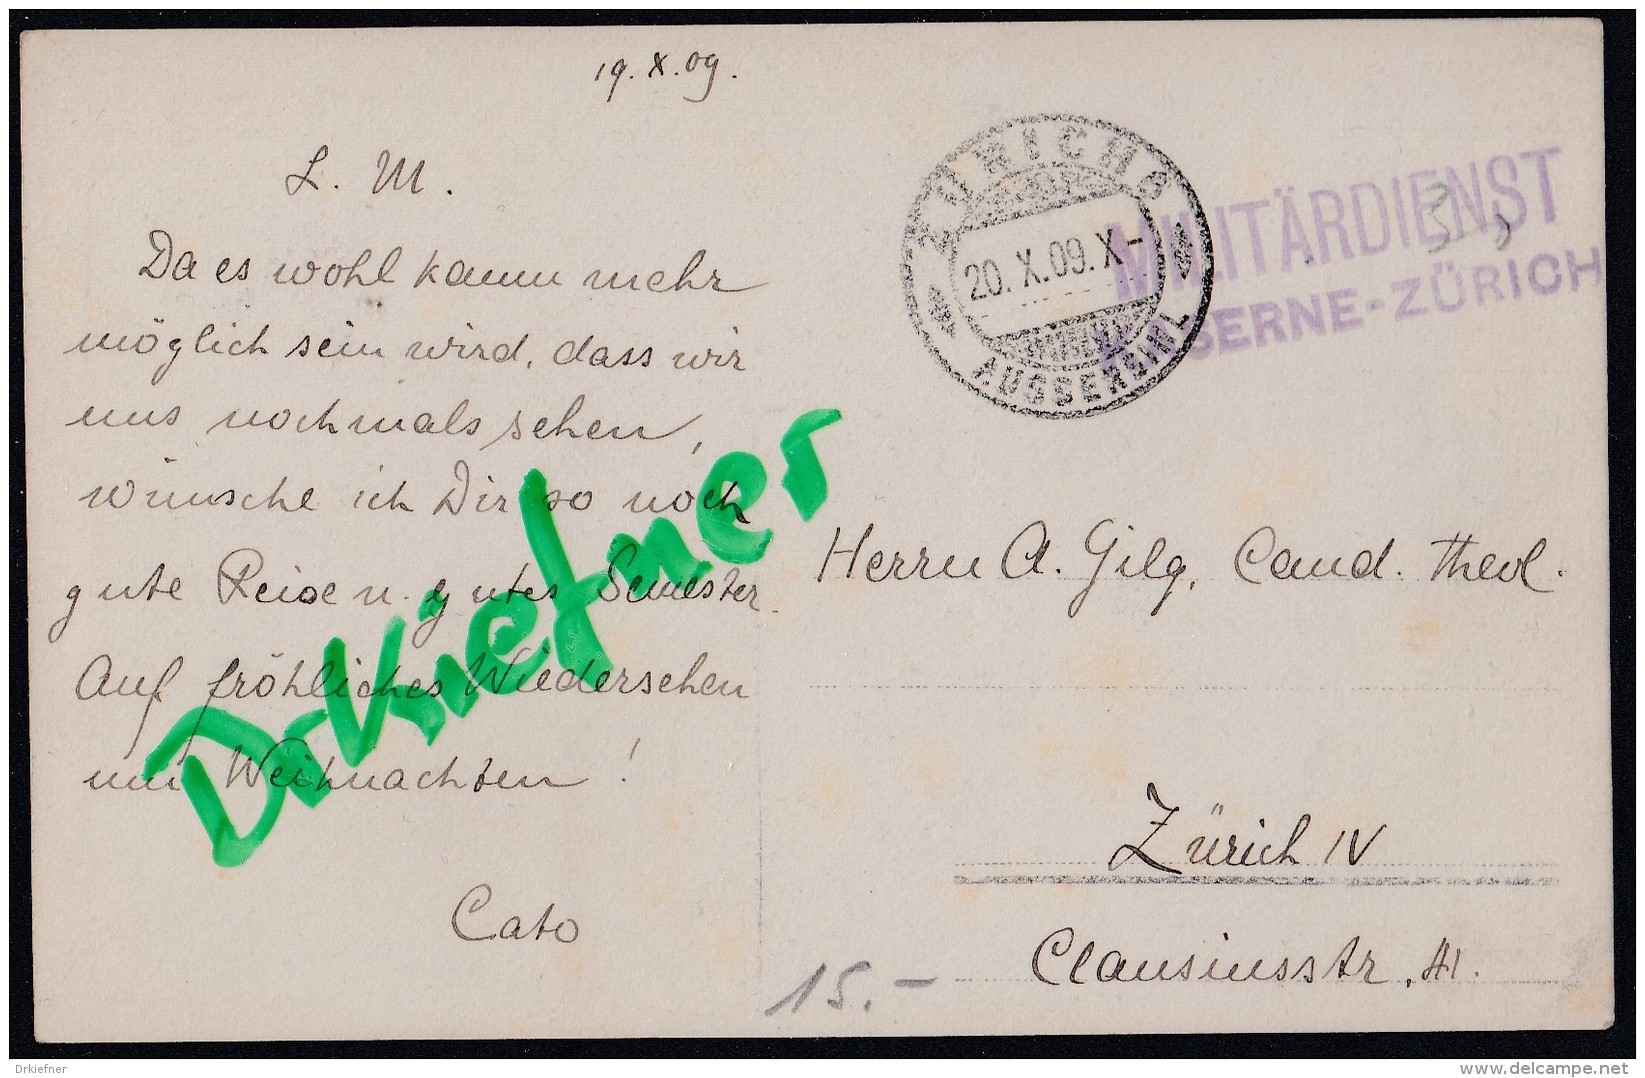 19. X. 09.
L. M.
Da es wohl kaum mehr
möglich sein wird, dass wir
uns nochmals sehen,
wünsche ich Dir so noch
gute Reise u. gutes Semester.
Auf fröhliches Wiedersehen
um Weihnachten!
Cato
DrKiefner
ZÜRICH 9
20. X. 09. X-
AUSSERSIHL
MILITÄRDIENST
SERNE-ZÜRICH
Herrn A. Gilg, Cand. Theol.
Zürich IV
Clausiusstr. 41.
15.-
Drkiefner
www.delcampe.net